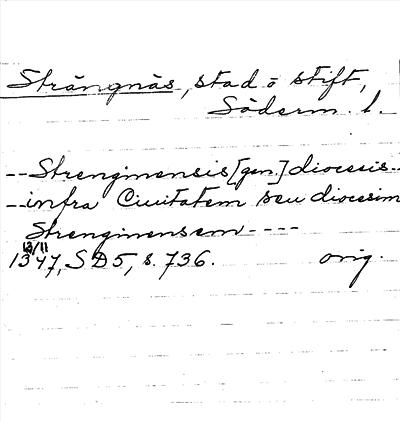 Strängnäs, stad o stift,
Söderm. l.
-- Strenginensis [gen.] diocesis --
-- infra Ciuitatem seu diocesim
Strenginensem ----
13/11
1347, SD5, s. 736. orig.